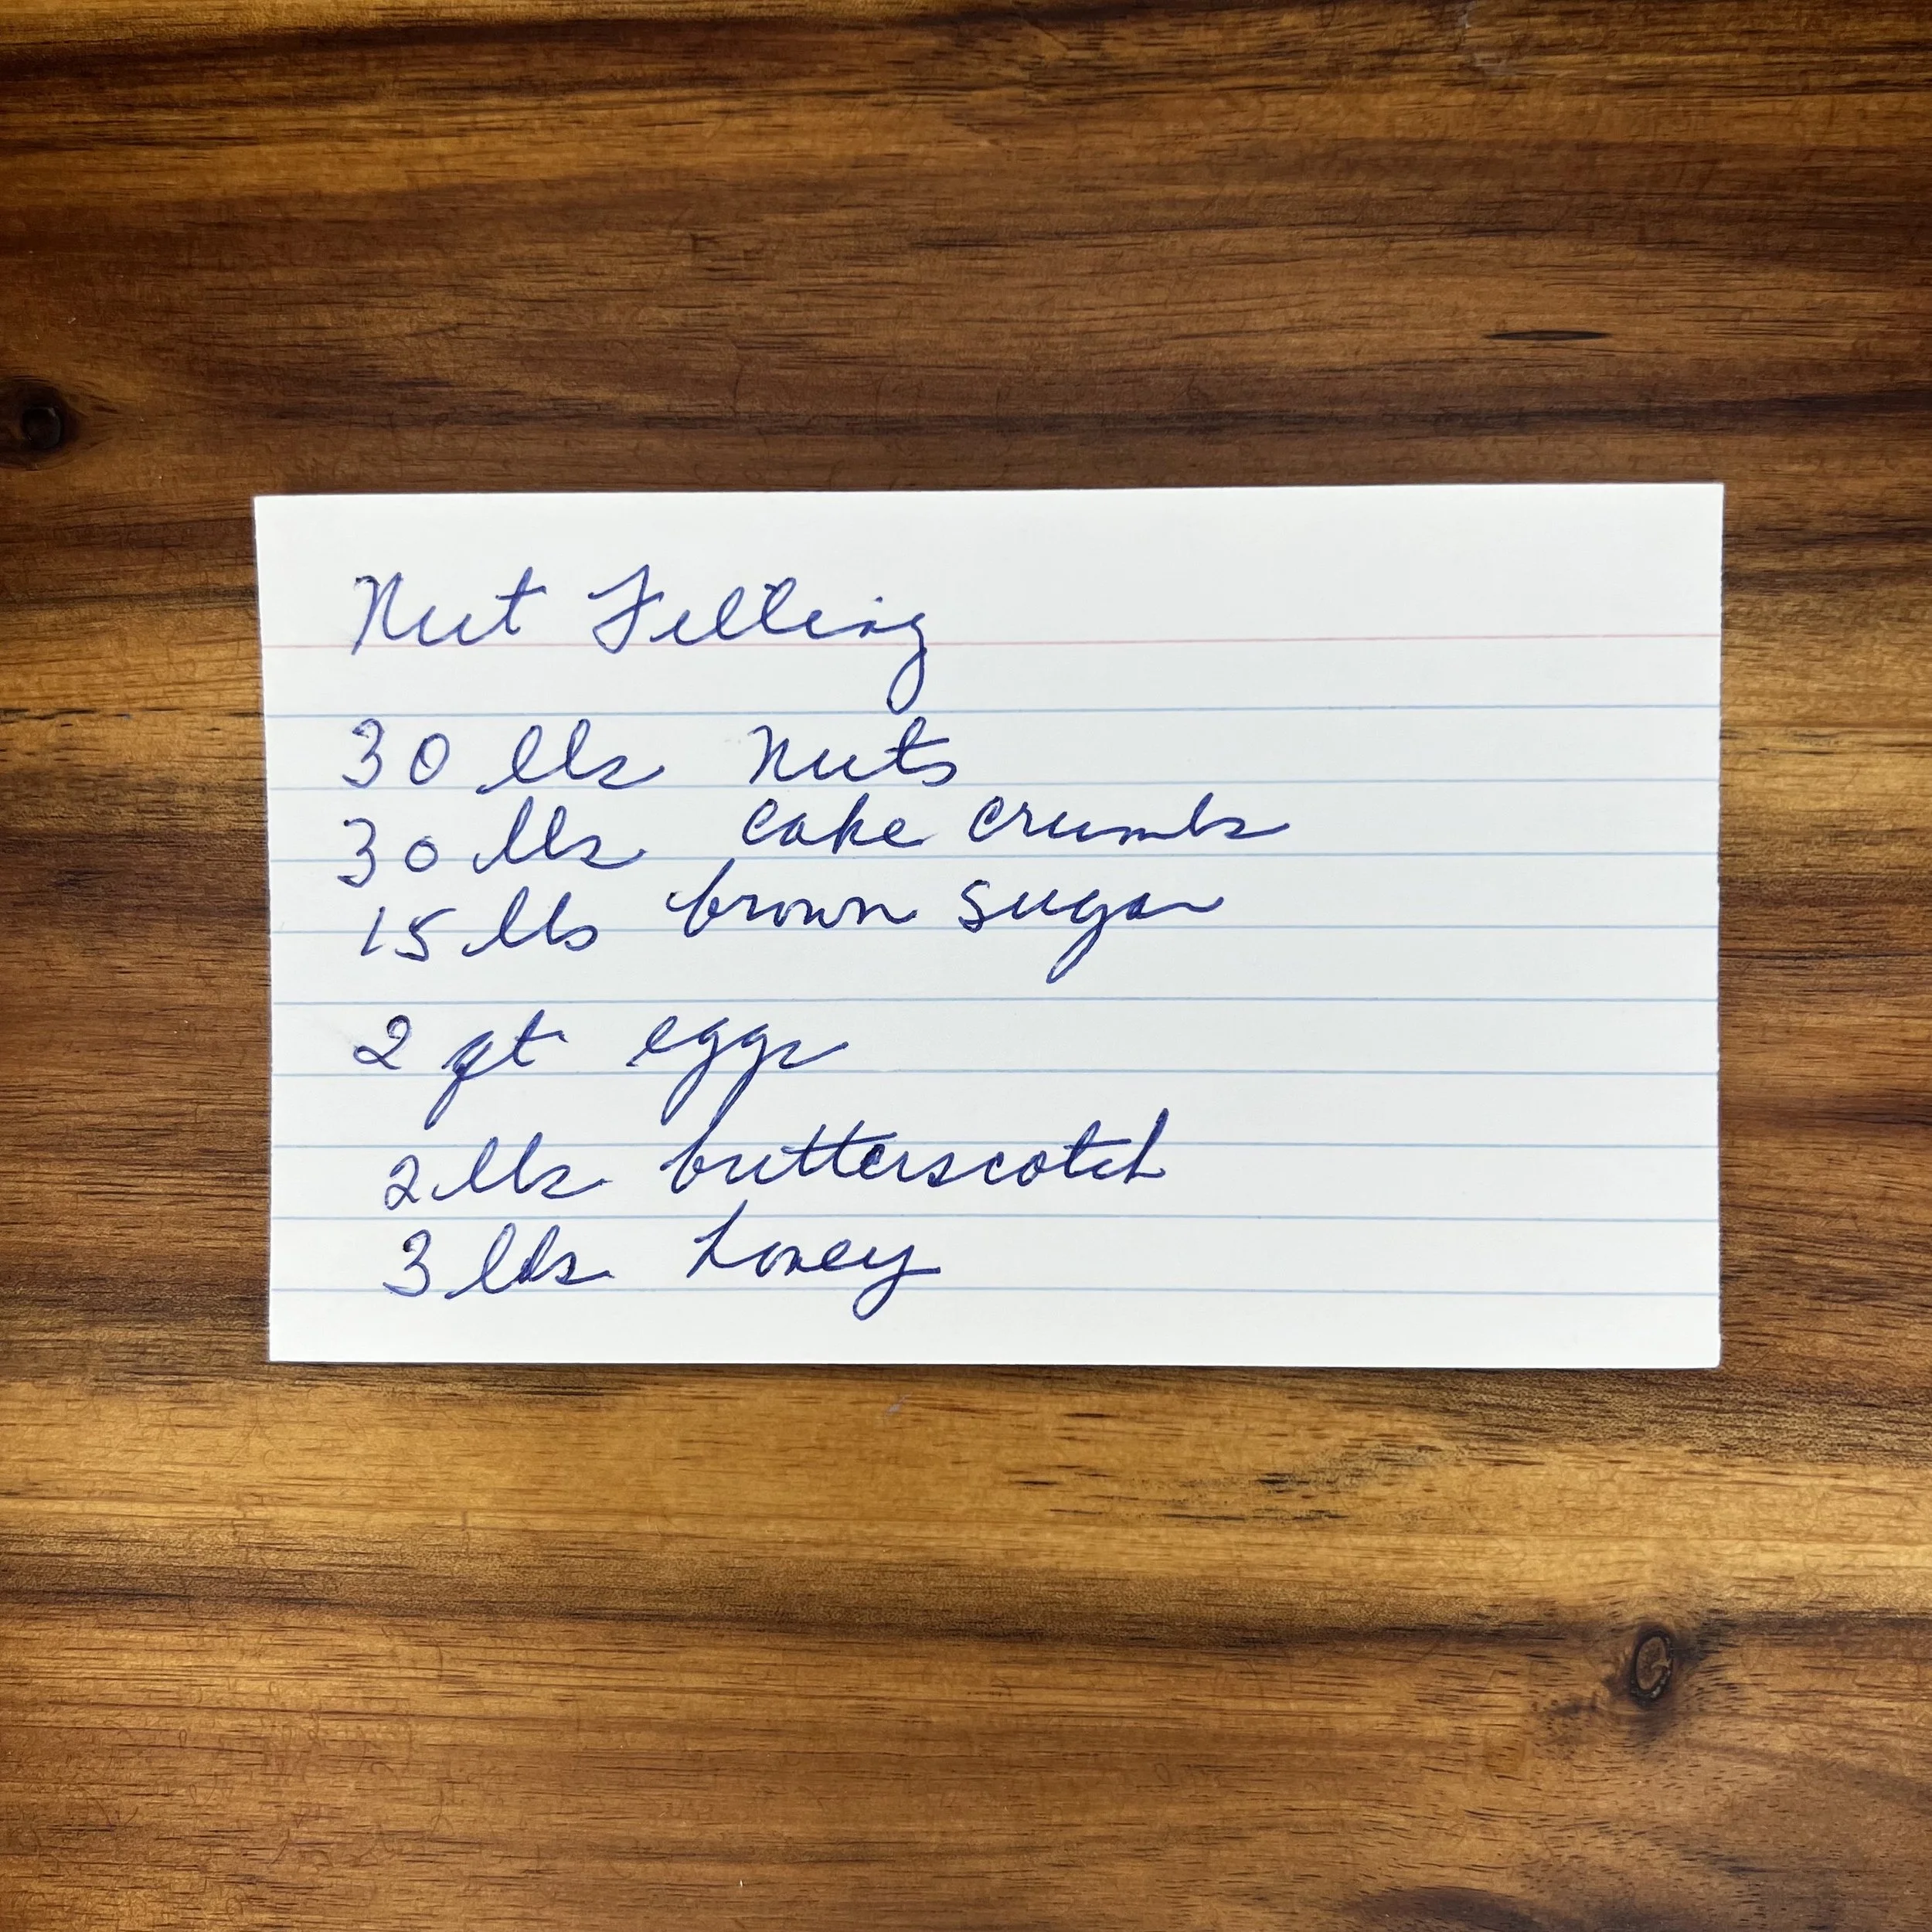 Nut Filling
30 lbs nuts
30 lbs cake crumbs
15 lbs brown sugar
2 qt eggs
2 lbs butterscotch
3 lbs honey